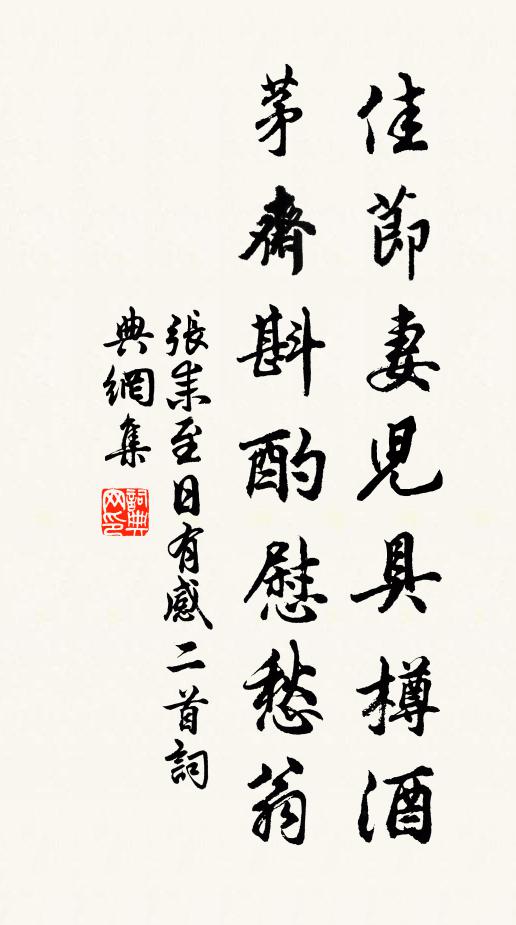 佳節妻児具樽酒
茅齋斟酌慰愁翁
張耒至日有感二首詞
典網集
詞典網印